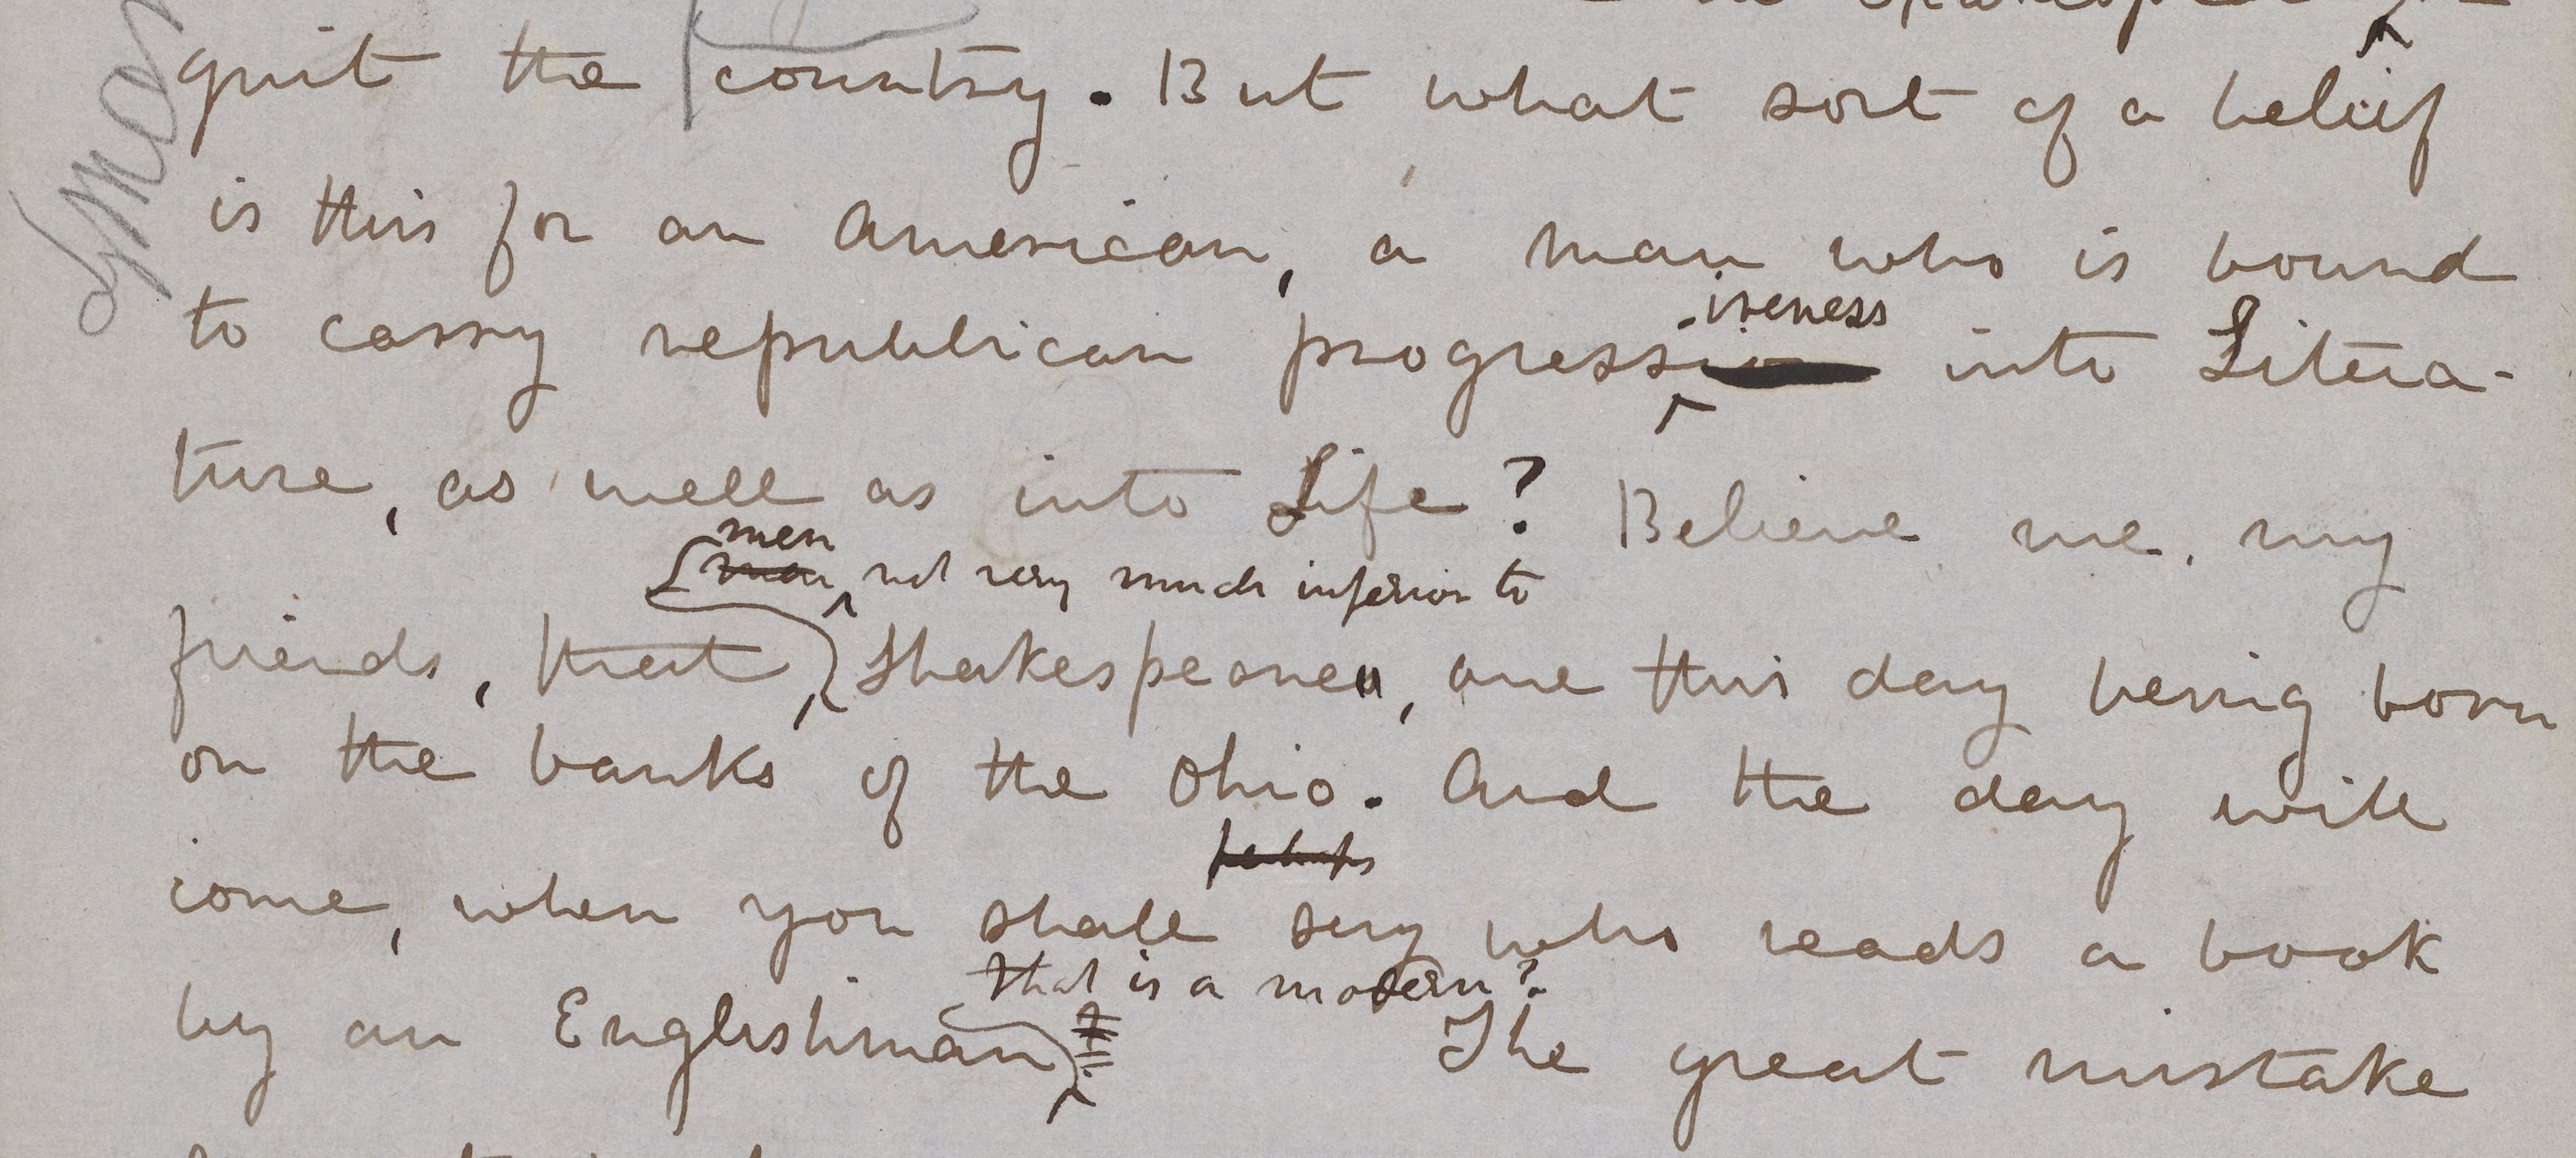 quit the country. But what sort of a belief
is this for an American, a man who is bound
iveness
to carry republican progressi into Litera-
ture, as well as into Life? Believe me, my
men
men not very much inferior to
friends, that Shakespeares, are this day being born
on the banks of the Ohio. And the day will
perhaps
come, when you shall say who reads a book
that is a modern?
by an Englishman The great mistake